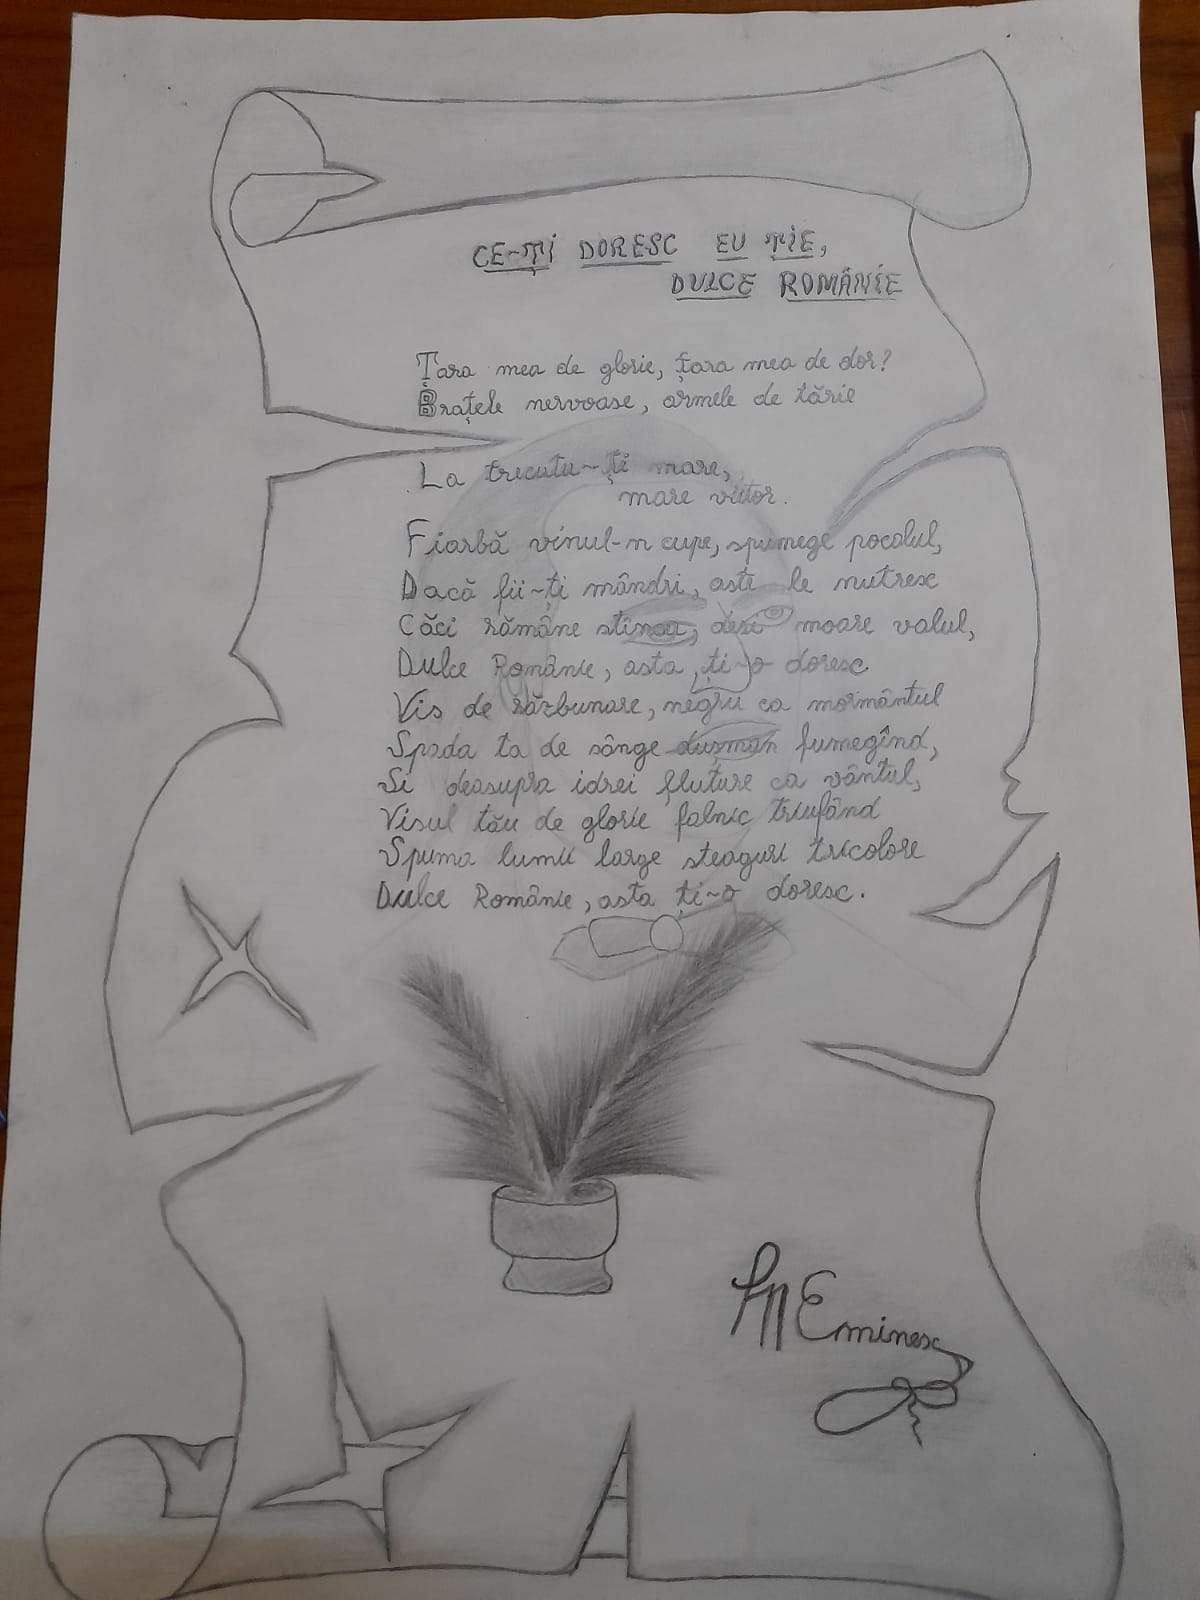 CE-ȚI DORESC EU ȚIE,
DULCE ROMÂNIE
Țara mea de glorie, țara mea de dor?
Brațele nervoase, armele de tărie
La trecutu-ți mare,
mare viitor.
Fiarbă vinul-n cupe, spumege pocalul,
Dacă fii-ți mândri, aste le nutresc
Căci rămâne stinca, deși moare valul,
Dulce Românie, asta ți-o doresc
Vis de răzbunare, negru ca mormântul
Spada ta de sânge dușman fumegînd,
Si deasupra idrei fluture ca vântul,
Visul tău de glorie falnic triufând
Spuma lumii large steaguri tricolore
Dulce Românie, asta ți-o doresc.
M Eminescu